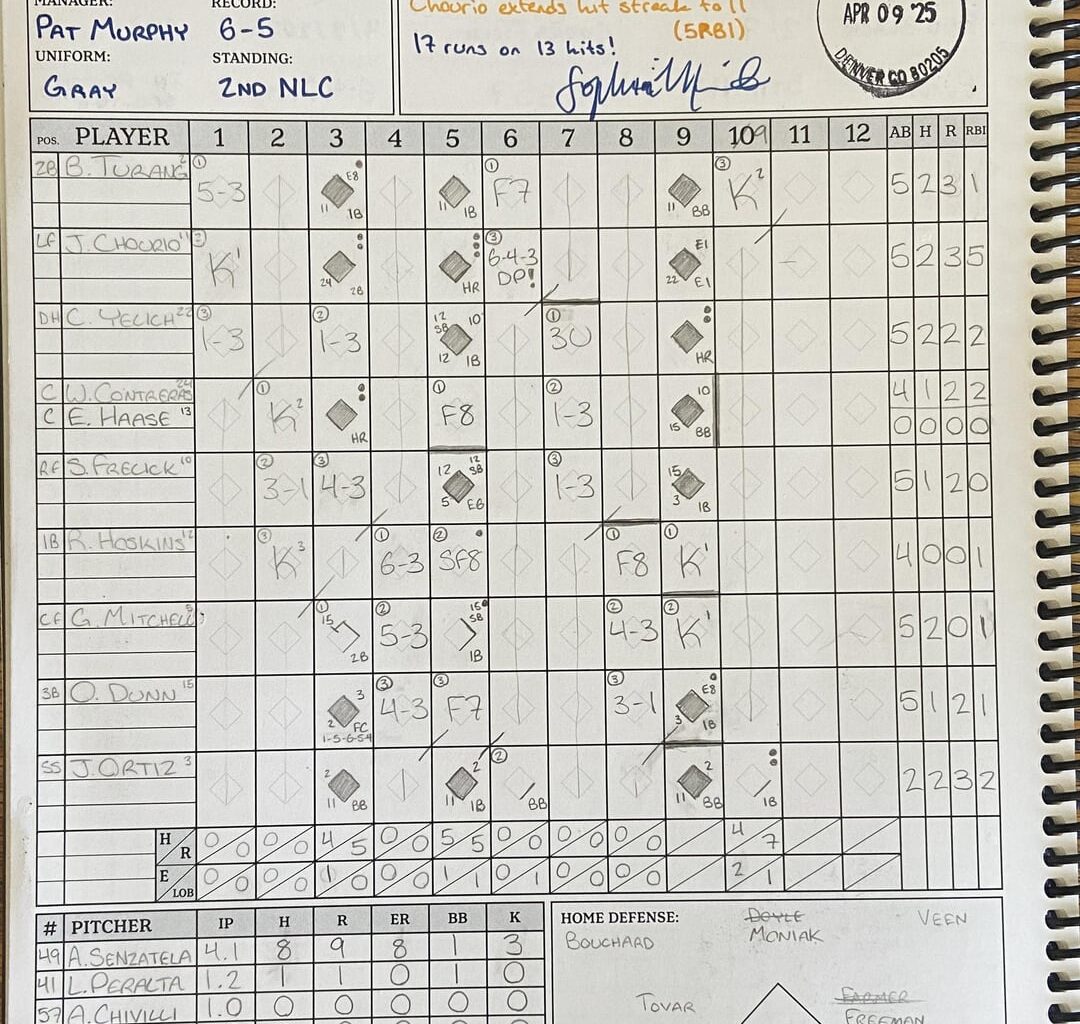 MANAGER: RECORD:
PAT MURPHY 6-5
UNIFORM: STANDING:
GRAY 2ND NLC
Chourio extends hit streak to 11
(5RBI)
17 runs on 13 hits!
APR 09 '25
DENVER CO 80205
POS. PLAYER 1 2 3 4 5 6 7 8 9 10 9 11 12 AB H R RBI
2B B. TURANG 2 ① 5-3 E8 11 1B 11 1B ① F7 11 BB ③ K 2 5 2 3 1
LF J. CHOURIO 11 ② K 1 24 2B HR ③ 6-4-3 DP! E1 22 E1 5 2 3 5
DH C. YELICH 22 ③ 1-3 ② 1-3 12 SB 10 12 1B ① 3U HR 5 2 2 2
C W. CONTRERAS 24 ① K 2 HR ① F8 ② 1-3 10 15 BB 4 1 2 2
C E. HAASE 13 0 0 0 0
RF S. FRELICK 10 ② 3-1 ③ 4-3 12 12 SB 5 E6 ③ 1-3 15 3 1B 5 1 2 0
1B R. HOSKINS 12 ③ K 3 ① 6-3 ② SF8 ① F8 ① K 1 4 0 0 1
CF G. MITCHELL 5 ① 15 2B ② 5-3 15 SB 1B ② 4-3 ② K 1 5 2 0 1
3B O. DUNN 15 3 2 FC 1-5-6-5-4 ③ 4-3 ③ F7 ③ 3-1 E8 3 1B 5 1 2 1
SS J. ORTIZ 3 2 11 BB 2 11 1B ② BB 2 11 BB 1B 2 2 3 2
H/R 0/0 0/0 4/5 0/0 5/5 0/0 0/0 0/0 4/7
E/LOB 0/0 0/0 1/0 0/0 1/1 0/1 0/0 0/0 2/1
# PITCHER IP H R ER BB K
49 A. SENZATELA 4.1 8 9 8 1 3
41 L. PERALTA 1.2 1 1 0 1 0
57 A. CHIVILLI 1.0 0 0 0 0 0
HOME DEFENSE: DOYLE VEEN
BOUCHARD MONIAK
TOVAR FARMER
FREEMAN